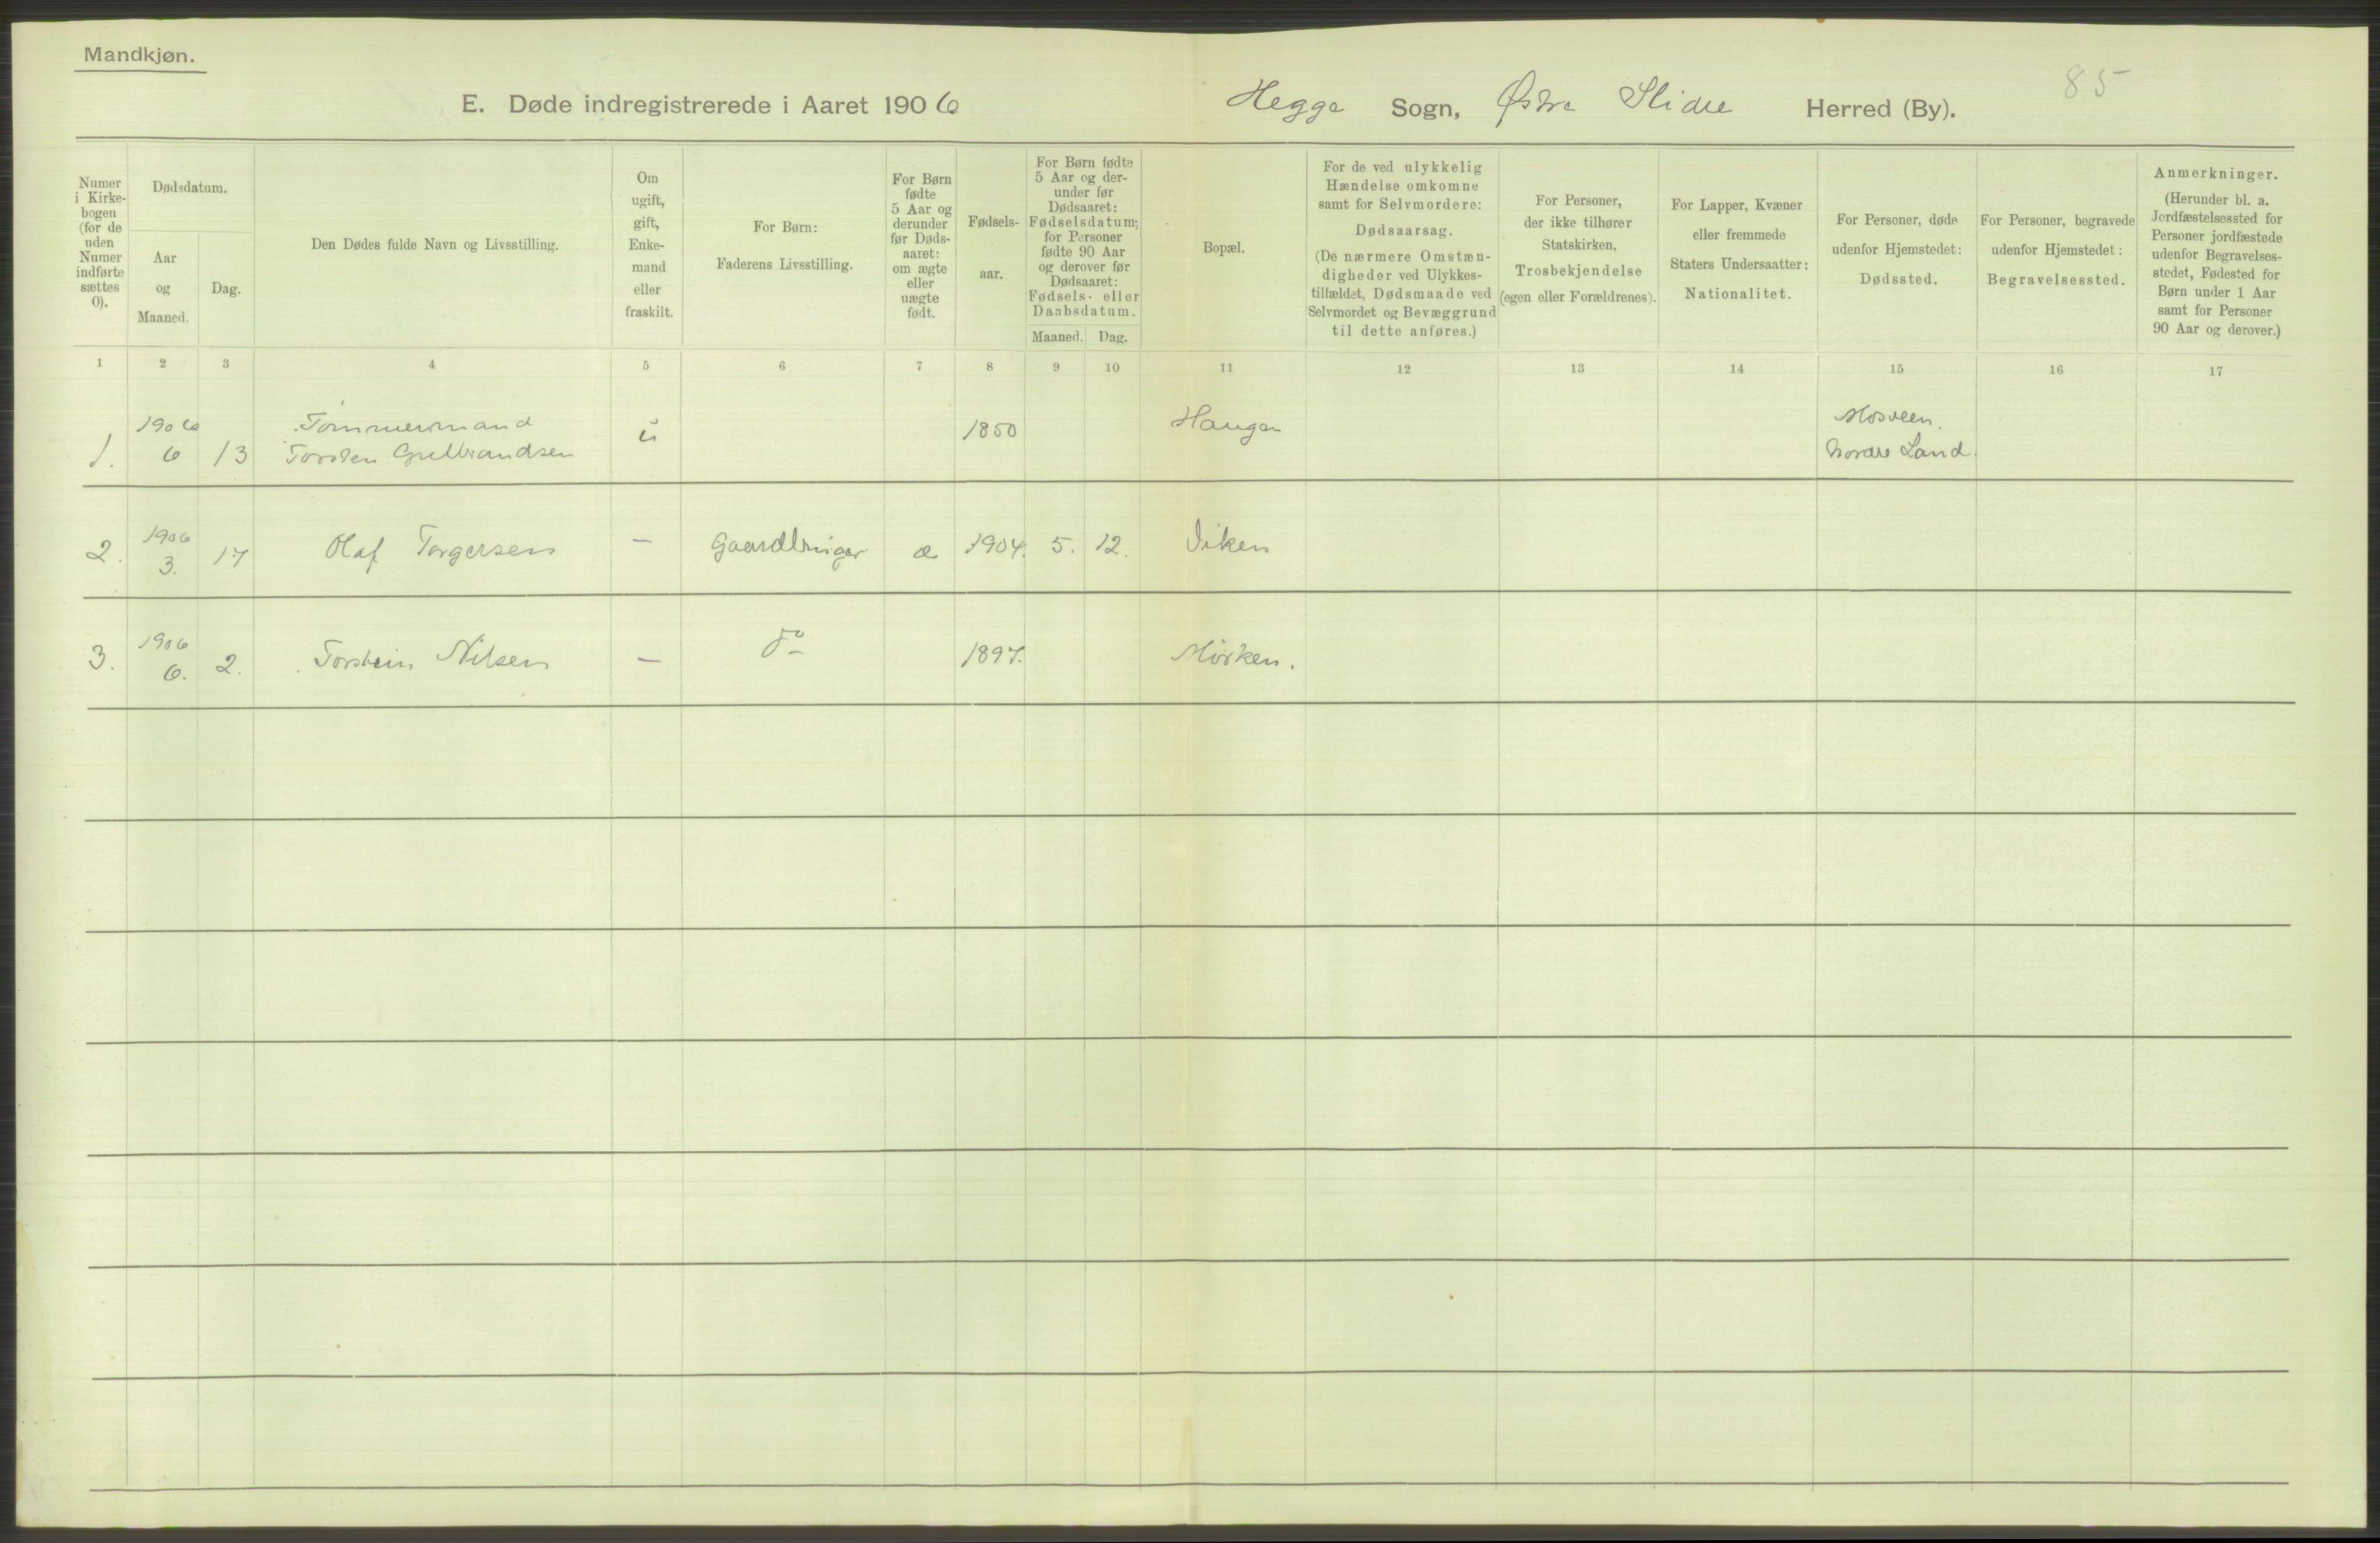 Mandkjøn.
E. Døde indregistrerede i Aaret 1906 Hegge Sogn, Østre Slidre Herred (By). 85
Numer i Kirkebogen (for de uden Numer indførte sættes 0).
Dødsdatum.
Aar og Maaned.
Dag.
Den Dødes fulde Navn og Livsstilling.
Om ugift, gift, Enkemand eller fraskilt.
For Børn: Faderens Livsstilling.
For Børn fødte 5 Aar og derunder før Dødsaaret: om ægte eller uægte født.
Fødselsaar.
For Børn fødte 5 Aar og derunder før Dødsaaret: Fødselsdatum; for Personer fødte 90 Aar og derover før Dødsaaret: Fødsels- eller Daabsdatum.
Maaned. Dag.
Bopæl.
For de ved ulykkelig Hændelse omkomne samt for Selvmordere: Dødsaarsag. (De nærmere Omstændigheder ved Ulykkestilfældet, Dødsmaade ved Selvmordet og Bevæggrund til dette anføres.)
For Personer, der ikke tilhører Statskirken, Trosbekjendelse (egen eller Forældrenes).
For Lapper, Kvæner eller fremmede Staters Undersaatter: Nationalitet.
For Personer, døde udenfor Hjemstedet: Dødssted.
For Personer, begravede udenfor Hjemstedet: Begravelsessted.
Anmerkninger. (Herunder bl. a. Jordfæstelsessted for Personer jordfæstede udenfor Begravelsesstedet, Fødested for Børn under 1 Aar samt for Personer 90 Aar og derover.)
1 2 3 4 5 6 7 8 9 10 11 12 13 14 15 16 17
1. 1906 6 13 Tømmermand Torsten Gulbrandsen u 1850 Haugen Mosveen. Nordre Land.
2. 1906 3. 17 Olaf Torgersen — Gaardbruger æ 1904. 5. 12. Viken
3. 1906 6. 2. Torstein Nilsen — Do 1897. Mörken.